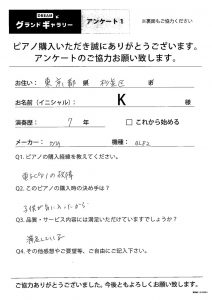 グランドギャラリー アンケート1 ※裏面もご協力ください
ピアノ購入いただき誠にありがとうございます。
アンケートのご協力お願い致します。
お住い: 東京都 県 杉並区 市
お名前(イニシャル): K 様
演奏歴: 7 年 これから始める
メーカー: 機種:
Q1. ピアノの購入経緯を教えてください。
Q2. このピアノの購入時の決め手は?
子供が気に入ったから
Q3. 品質・サービス内容には満足いただけていますでしょうか?
満足している
Q4. その他感想やご要望等、ご自由にご記入下さい。
ご協力ありがとうございました。今後ともよろしくお願い致します。